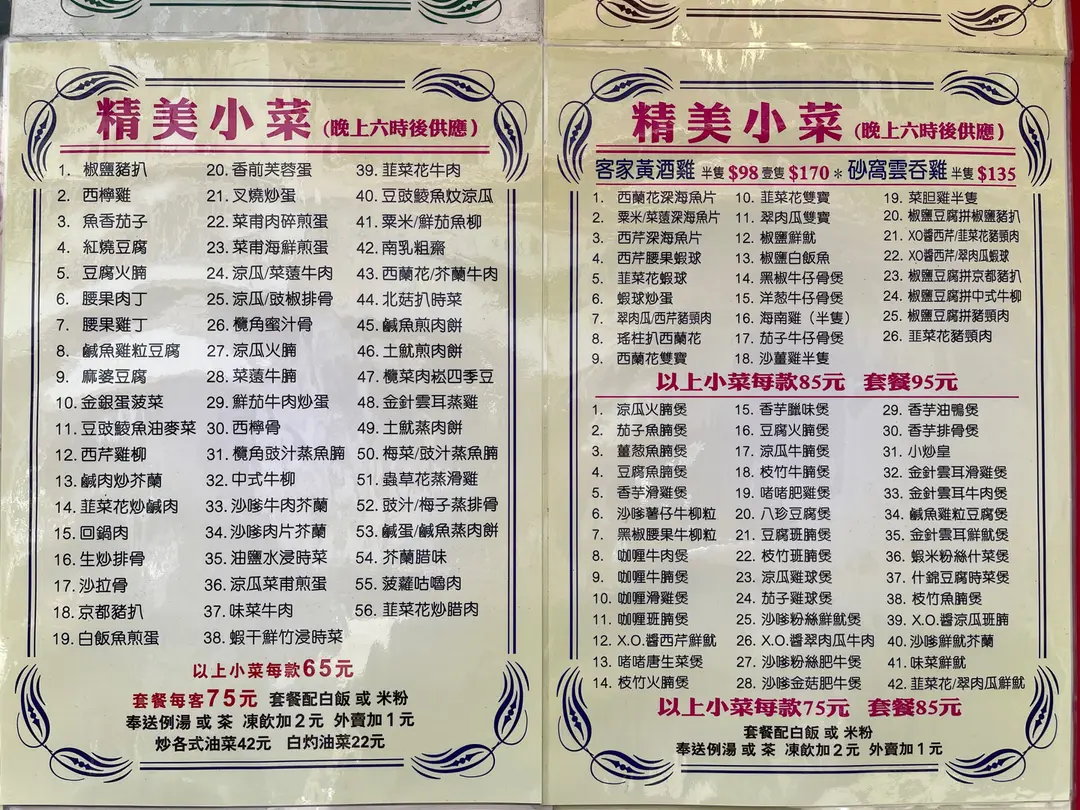 精美小菜 (晚上六時後供應)
1. 椒鹽豬扒
2. 西檸雞
3. 魚香茄子
4. 紅燒豆腐
5. 豆腐火腩
6. 腰果肉丁
7. 腰果雞丁
8. 鹹魚雞粒豆腐
9. 麻婆豆腐
10. 金銀蛋菠菜
11. 豆豉鯪魚油麥菜
12. 西芹雞柳
13. 鹹肉炒芥蘭
14. 韮菜花炒鹹肉
15. 回鍋肉
16. 生炒排骨
17. 沙拉骨
18. 京都豬扒
19. 白飯魚煎蛋
20. 香前芙蓉蛋
21. 叉燒炒蛋
22. 菜甫肉碎煎蛋
23. 菜甫海鮮煎蛋
24. 涼瓜/菜薳牛肉
25. 涼瓜/豉椒排骨
26. 欖角蜜汁骨
27. 涼瓜火腩
28. 菜薳牛腩
29. 鮮茄牛肉炒蛋
30. 西檸骨
31. 欖角豉汁蒸魚腩
32. 中式牛柳
33. 沙嗲牛肉芥蘭
34. 沙嗲肉片芥蘭
35. 油鹽水浸時菜
36. 涼瓜菜甫煎蛋
37. 味菜牛肉
38. 蝦干鮮竹浸時菜
39. 韮菜花牛肉
40. 豆豉鯪魚炆涼瓜
41. 粟米/鮮茄魚柳
42. 南乳粗齋
43. 西蘭花/芥蘭牛肉
44. 北菇扒時菜
45. 鹹魚煎肉餅
46. 土魷煎肉餅
47. 欖菜肉崧四季豆
48. 金針雲耳蒸雞
49. 土魷蒸肉餅
50. 梅菜/豉汁蒸魚腩
51. 蟲草花蒸滑雞
52. 豉汁/梅子蒸排骨
53. 鹹蛋/鹹魚蒸肉餅
54. 芥蘭腊味
55. 菠蘿咕嚕肉
56. 韮菜花炒腊肉
以上小菜每款65元
套餐每客75元 套餐配白飯 或 米粉
奉送例湯 或 茶 凍飲加2元 外賣加1元
炒各式油菜42元 白灼油菜22元
精美小菜 (晚上六時後供應)
客家黃酒雞 半隻 $98 壹隻 $170 * 砂窩雲吞雞 半隻 $135
1. 西蘭花深海魚片
2. 粟米/菜薳深海魚片
3. 西芹深海魚片
4. 西芹腰果蝦球
5. 韮菜花蝦球
6. 蝦球炒蛋
7. 翠肉瓜/西芹豬頸肉
8. 瑤柱扒西蘭花
9. 西蘭花雙寶
10. 韮菜花雙寶
11. 翠肉瓜雙寶
12. 椒鹽鮮魷
13. 椒鹽白飯魚
14. 黑椒牛仔骨煲
15. 洋葱牛仔骨煲
16. 海南雞（半隻）
17. 茄子牛仔骨煲
18. 沙薑雞半隻
19. 菜胆雞半隻
20. 椒鹽豆腐拼椒鹽豬扒
21. XO醬西芹/韮菜花豬頸肉
22. XO醬西芹/翠肉瓜蝦球
23. 椒鹽豆腐拼京都豬扒
24. 椒鹽豆腐拼中式牛柳
25. 椒鹽豆腐拼豬頸肉
26. 韮菜花豬頸肉
以上小菜每款85元 套餐95元
1. 涼瓜火腩煲
2. 茄子魚腩煲
3. 薑葱魚腩煲
4. 豆腐魚腩煲
5. 香芋滑雞煲
6. 沙嗲薯仔牛柳粒
7. 黑椒腰果牛柳粒
8. 咖喱牛肉煲
9. 咖喱牛腩煲
10. 咖喱滑雞煲
11. 咖喱班腩煲
12. X.O.醬西芹鮮魷
13. 啫啫唐生菜煲
14. 枝竹火腩煲
15. 香芋臘味煲
16. 豆腐火腩煲
17. 涼瓜牛腩煲
18. 枝竹牛腩煲
19. 啫啫肥雞煲
20. 八珍豆腐煲
21. 豆腐班腩煲
22. 枝竹班腩煲
23. 涼瓜雞球煲
24. 茄子雞球煲
25. 沙嗲粉絲鮮魷煲
26. X.O.醬翠肉瓜牛肉
27. 沙嗲粉絲肥牛煲
28. 沙嗲金菇肥牛煲
29. 香芋油鴨煲
30. 香芋排骨煲
31. 小炒皇
32. 金針雲耳滑雞煲
33. 金針雲耳牛肉煲
34. 鹹魚雞粒豆腐煲
35. 金針雲耳鮮魷煲
36. 蝦米粉絲什菜煲
37. 什錦豆腐時菜煲
38. 枝竹魚腩煲
39. X.O.醬涼瓜班腩
40. 沙嗲鮮魷芥蘭
41. 味菜鮮魷
42. 韮菜花/翠肉瓜鮮魷
以上小菜每款75元 套餐85元
套餐配白飯 或 米粉
奉送例湯 或 茶 凍飲加2元 外賣加1元